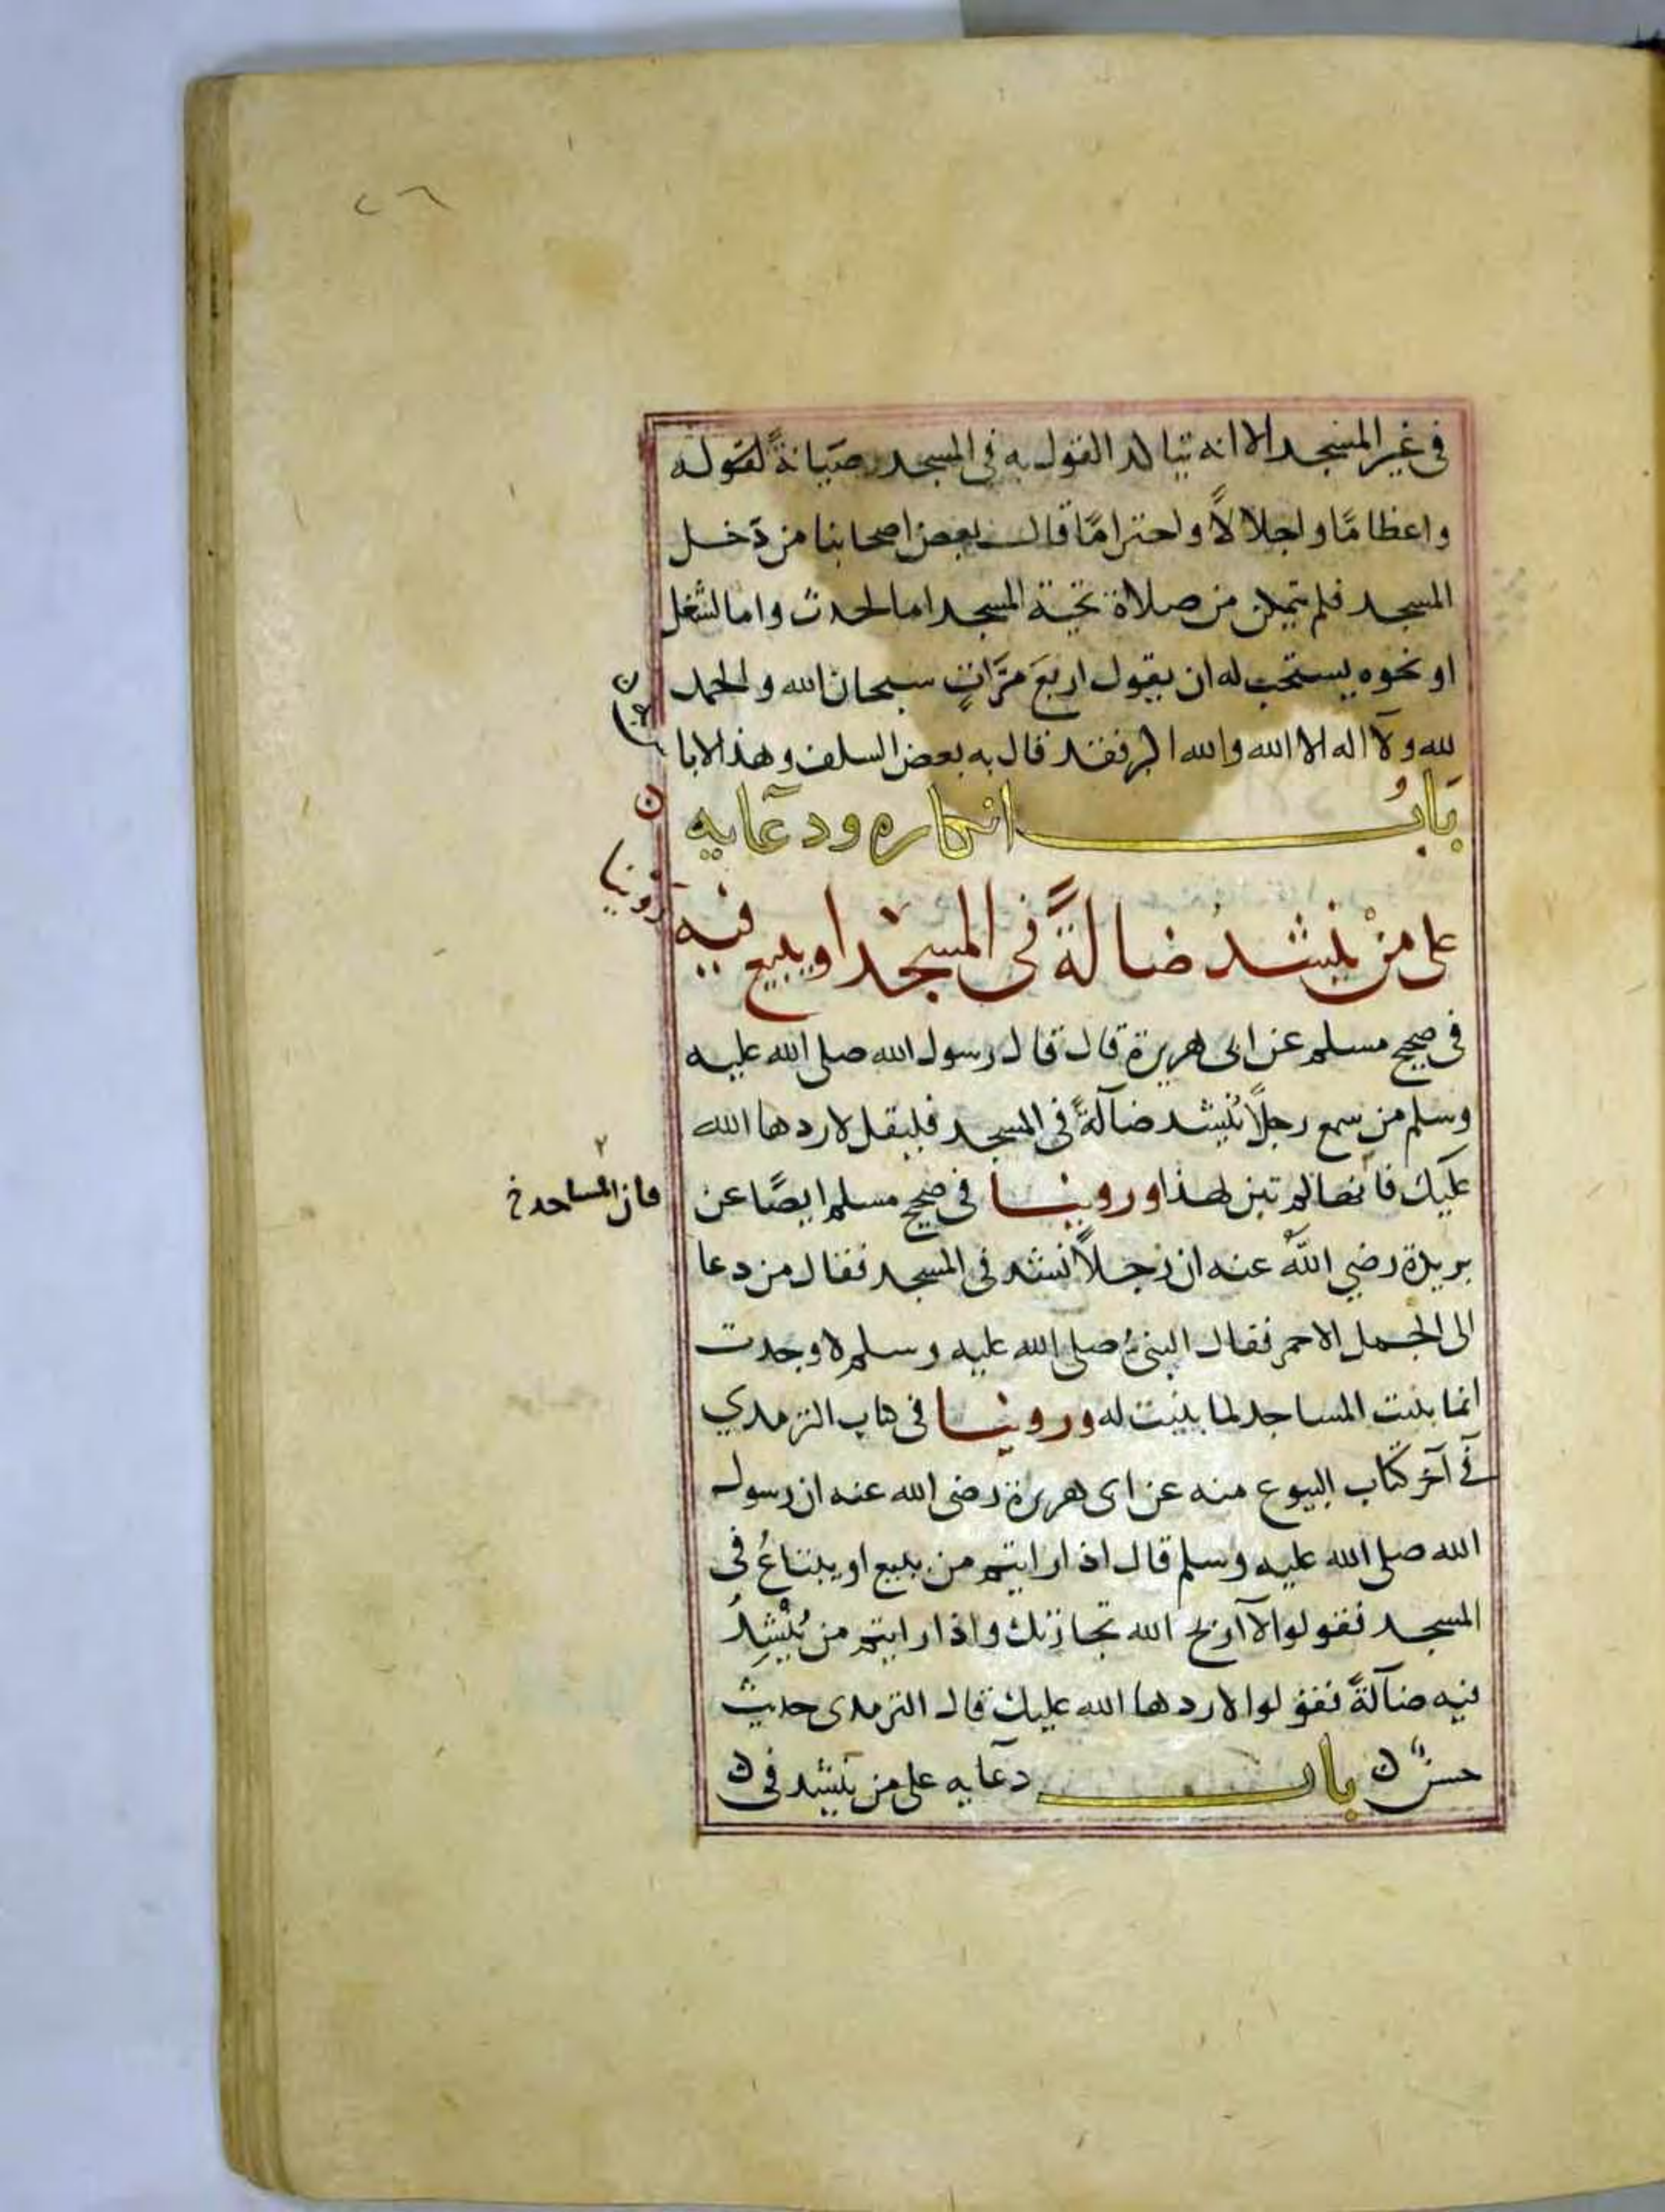 ٢٦
في غير المسجد الا انه يتاكد القول به في المسجد صيانةً لقوله
واعظامًا واجلالاً واحترامًا قال بعض اصحابنا من دَخل
المسجد فلم يتمكن من صلاة تحية المسجد اما لحدث واما لشغل
او نحوه يستحب له ان يقول اربعَ مرَّاتٍ سبحان الله والحمد
لله ولآ اله الا الله والله اكبر فقد قال به بعض السلف وهذا لابا
بَابُ انكاره ودعآيه
على منْ ينشدُ ضالةً في المسجد او يبيع فيه
روينا
في صحيح مسلم عن ابى هريرة قال قال رسول الله صلى الله عليه
وسلم من سمع رجلاً يُنشد ضآلةً في المسجد فليقل لا ردها الله
عليك فان
فان المساجد خ
لم تبن لهذا وروينا في صحيح مسلم ايضًا عن
بريدة رضي اللهُ عنه ان رجلاً نشد في المسجد فقال من دعا
الى الجمل الاحمر فقال النبىُ صلى الله عليه وسلم لا وجدت
انما بنيت المساجد لما بنيت له وروينا في كتاب الترمدي
في آخر كتاب البيوع منه عن ابى هريرة رضى الله عنه ان رسول
الله صلى الله عليه وسلم قال اذا رايتم من يبيع او يبتاعُ في
المسجد فقولوا لآ اربح الله تجارتك واذا رايتم من يُنْشِدُ
فيه ضآلةً فقولوا لا ردها الله عليك قال الترمدى حديث
حسنٌ ن باب دعآيه على من يَنشد في ن